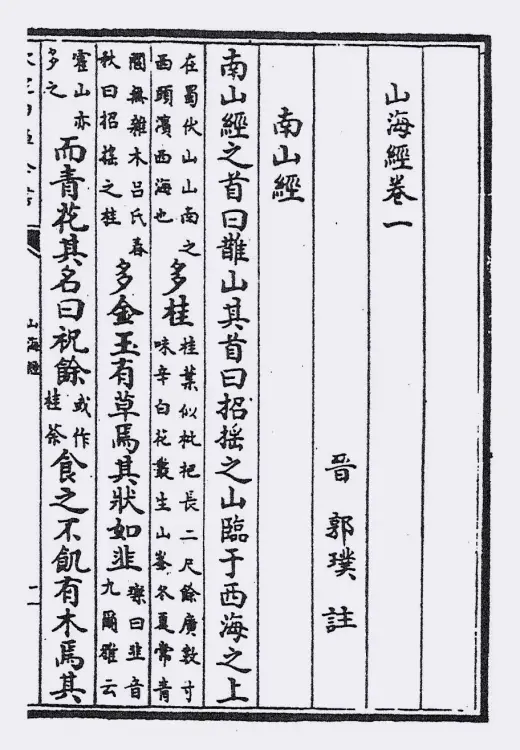 山海經卷一
晋 郭璞 註
南山經
南山經之首曰䧿山其首曰招搖之山臨于西海之上
在蜀伏山山南之
西頭濱西海也
多桂
桂葉似枇杷長二尺餘廣數寸
味辛白花叢生山峯冬夏常青
間無雜木吕氏春
秋曰招搖之桂
多金玉有草焉其狀如韭
璨曰韭音
九爾雅云
霍山亦
多之
而青花其名曰祝餘
或作
桂荼
食之不飢有木焉其
山海經
二